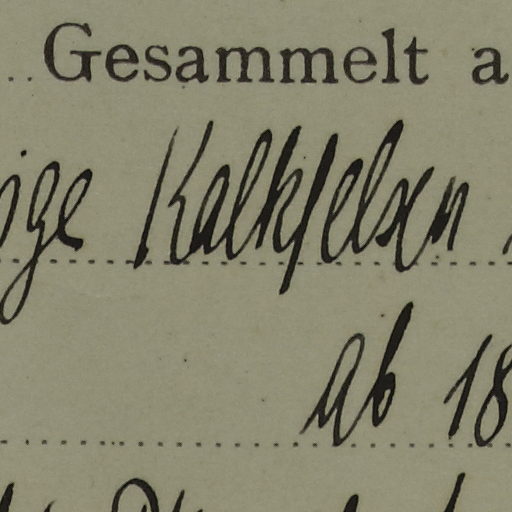 Gesammelt a
ige Kalkfelsen
ab 18